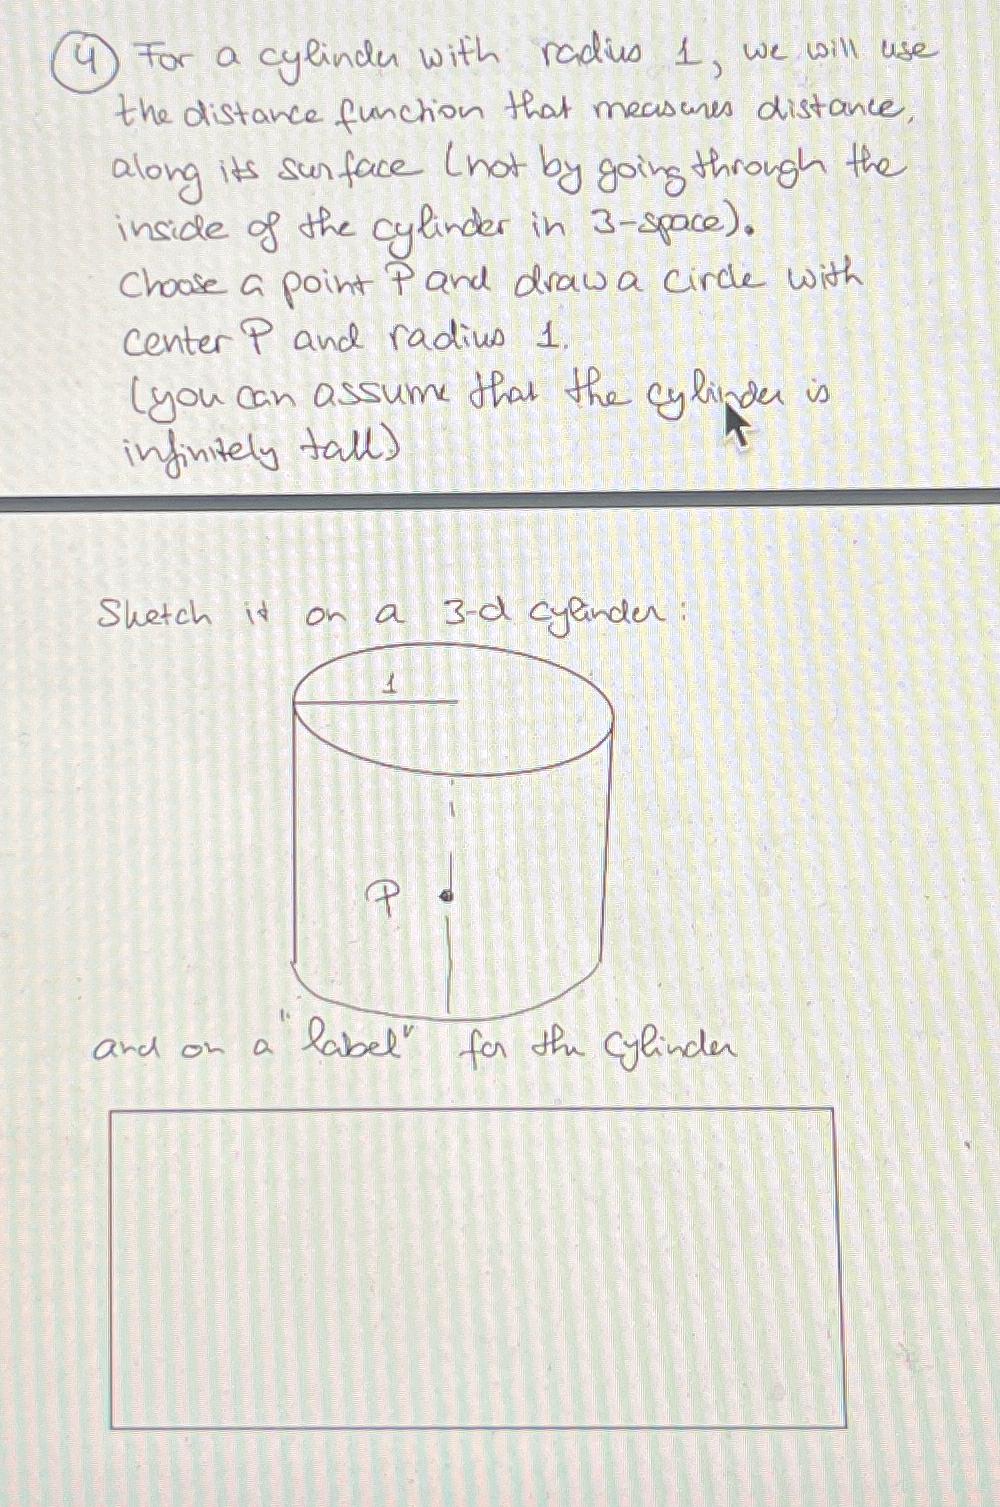 4 For a cylinder with radius 1, we will use
the distance function that measures distance,
along its surface (not by going through the
inside of the cylinder in 3-space).
Choose a point P and draw a circle with
center P and radius 1.
(you can assume that the cylinder is
infinitely tall)
Sketch it on a 3-d cylinder:
1
P
and on a "label" for the cylinder